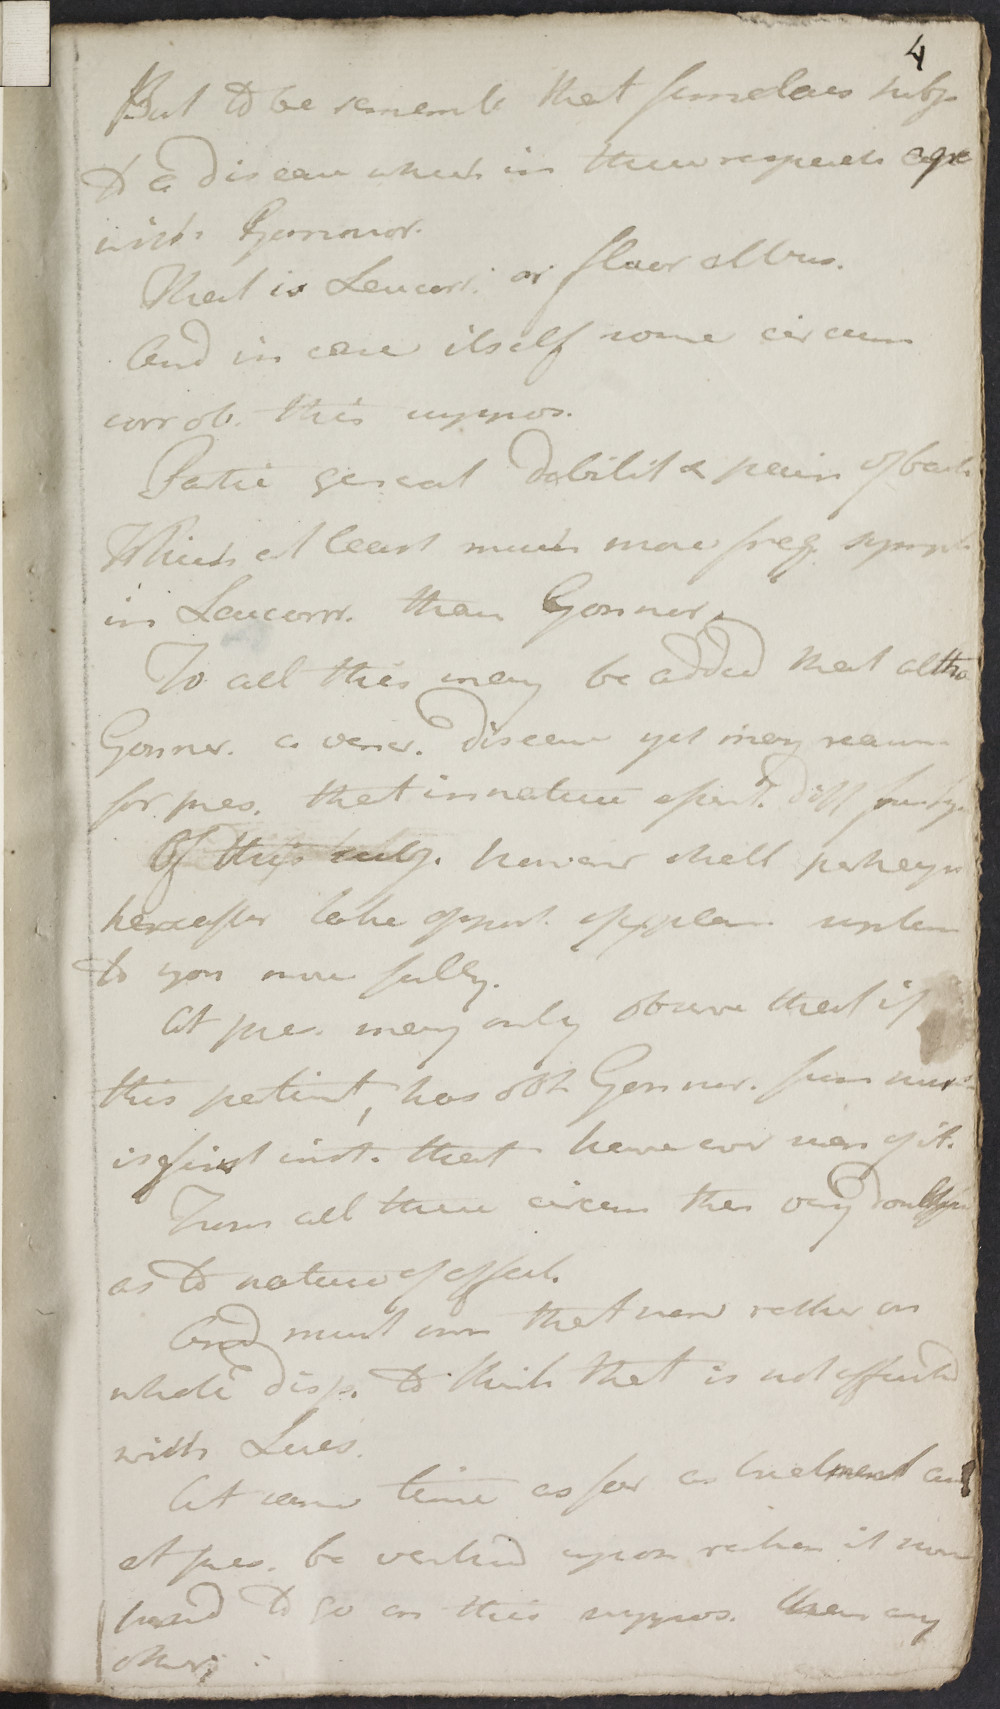 4
But to be rememb that females subj
to a disease which in these respects agre
with Gonnor.
That is Leucorr. or fluor albus.
And in case itself some circum
corrob. this suppos.
Partic general debilit & pain of back
Which at least much more freq. sympt
in Leucorr. than Gonnor.
To all this may be added that altho
Gonnor. a vener. disease yet may reason
for pres. that in nature essent. diff from
Of this subj. however shall perhaps
hereafter take opport. of explain
to you more fully.
At pres. may only observe that if
this patient, has both Gonnor.
is first inst. that have ever seen of it.
From all these circum then very doubtful
as to nature of affect.
And must own that now rather on
whole disp. to think that is not affected
with Lues.
At same time as far as treatment can
at pres. be ventured upon reckon it more
to go on this suppos. than any
other.